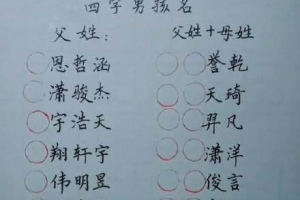 四字男孩名
父姓： 父姓+母姓
思哲涵 誉乾
潇骏杰 天琦
宇浩天 羿凡
翔轩宇 潇洋
伟明昱 俊言